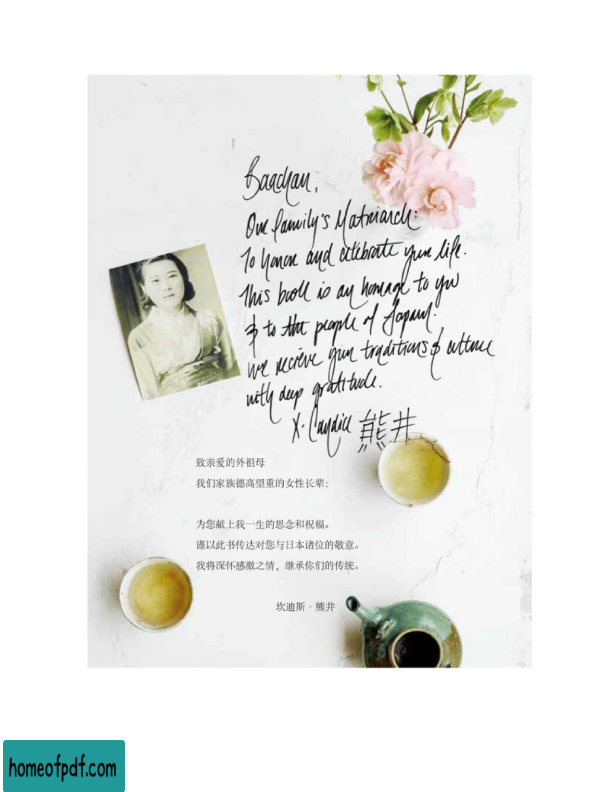 Baachan,
Our family's Matriarch:
To honor and celebrate your life.
This book is an homage to you
& to the people of Japan.
we recieve your traditions & culture
with deep gratitude.
X. Candice 熊井
致亲爱的外祖母
我们家族德高望重的女性长辈：
为您献上我一生的思念和祝福。
谨以此书传达对您与日本诸位的敬意。
我将深怀感激之情，继承你们的传统。
坎迪斯 · 熊井
homeofpdf.com